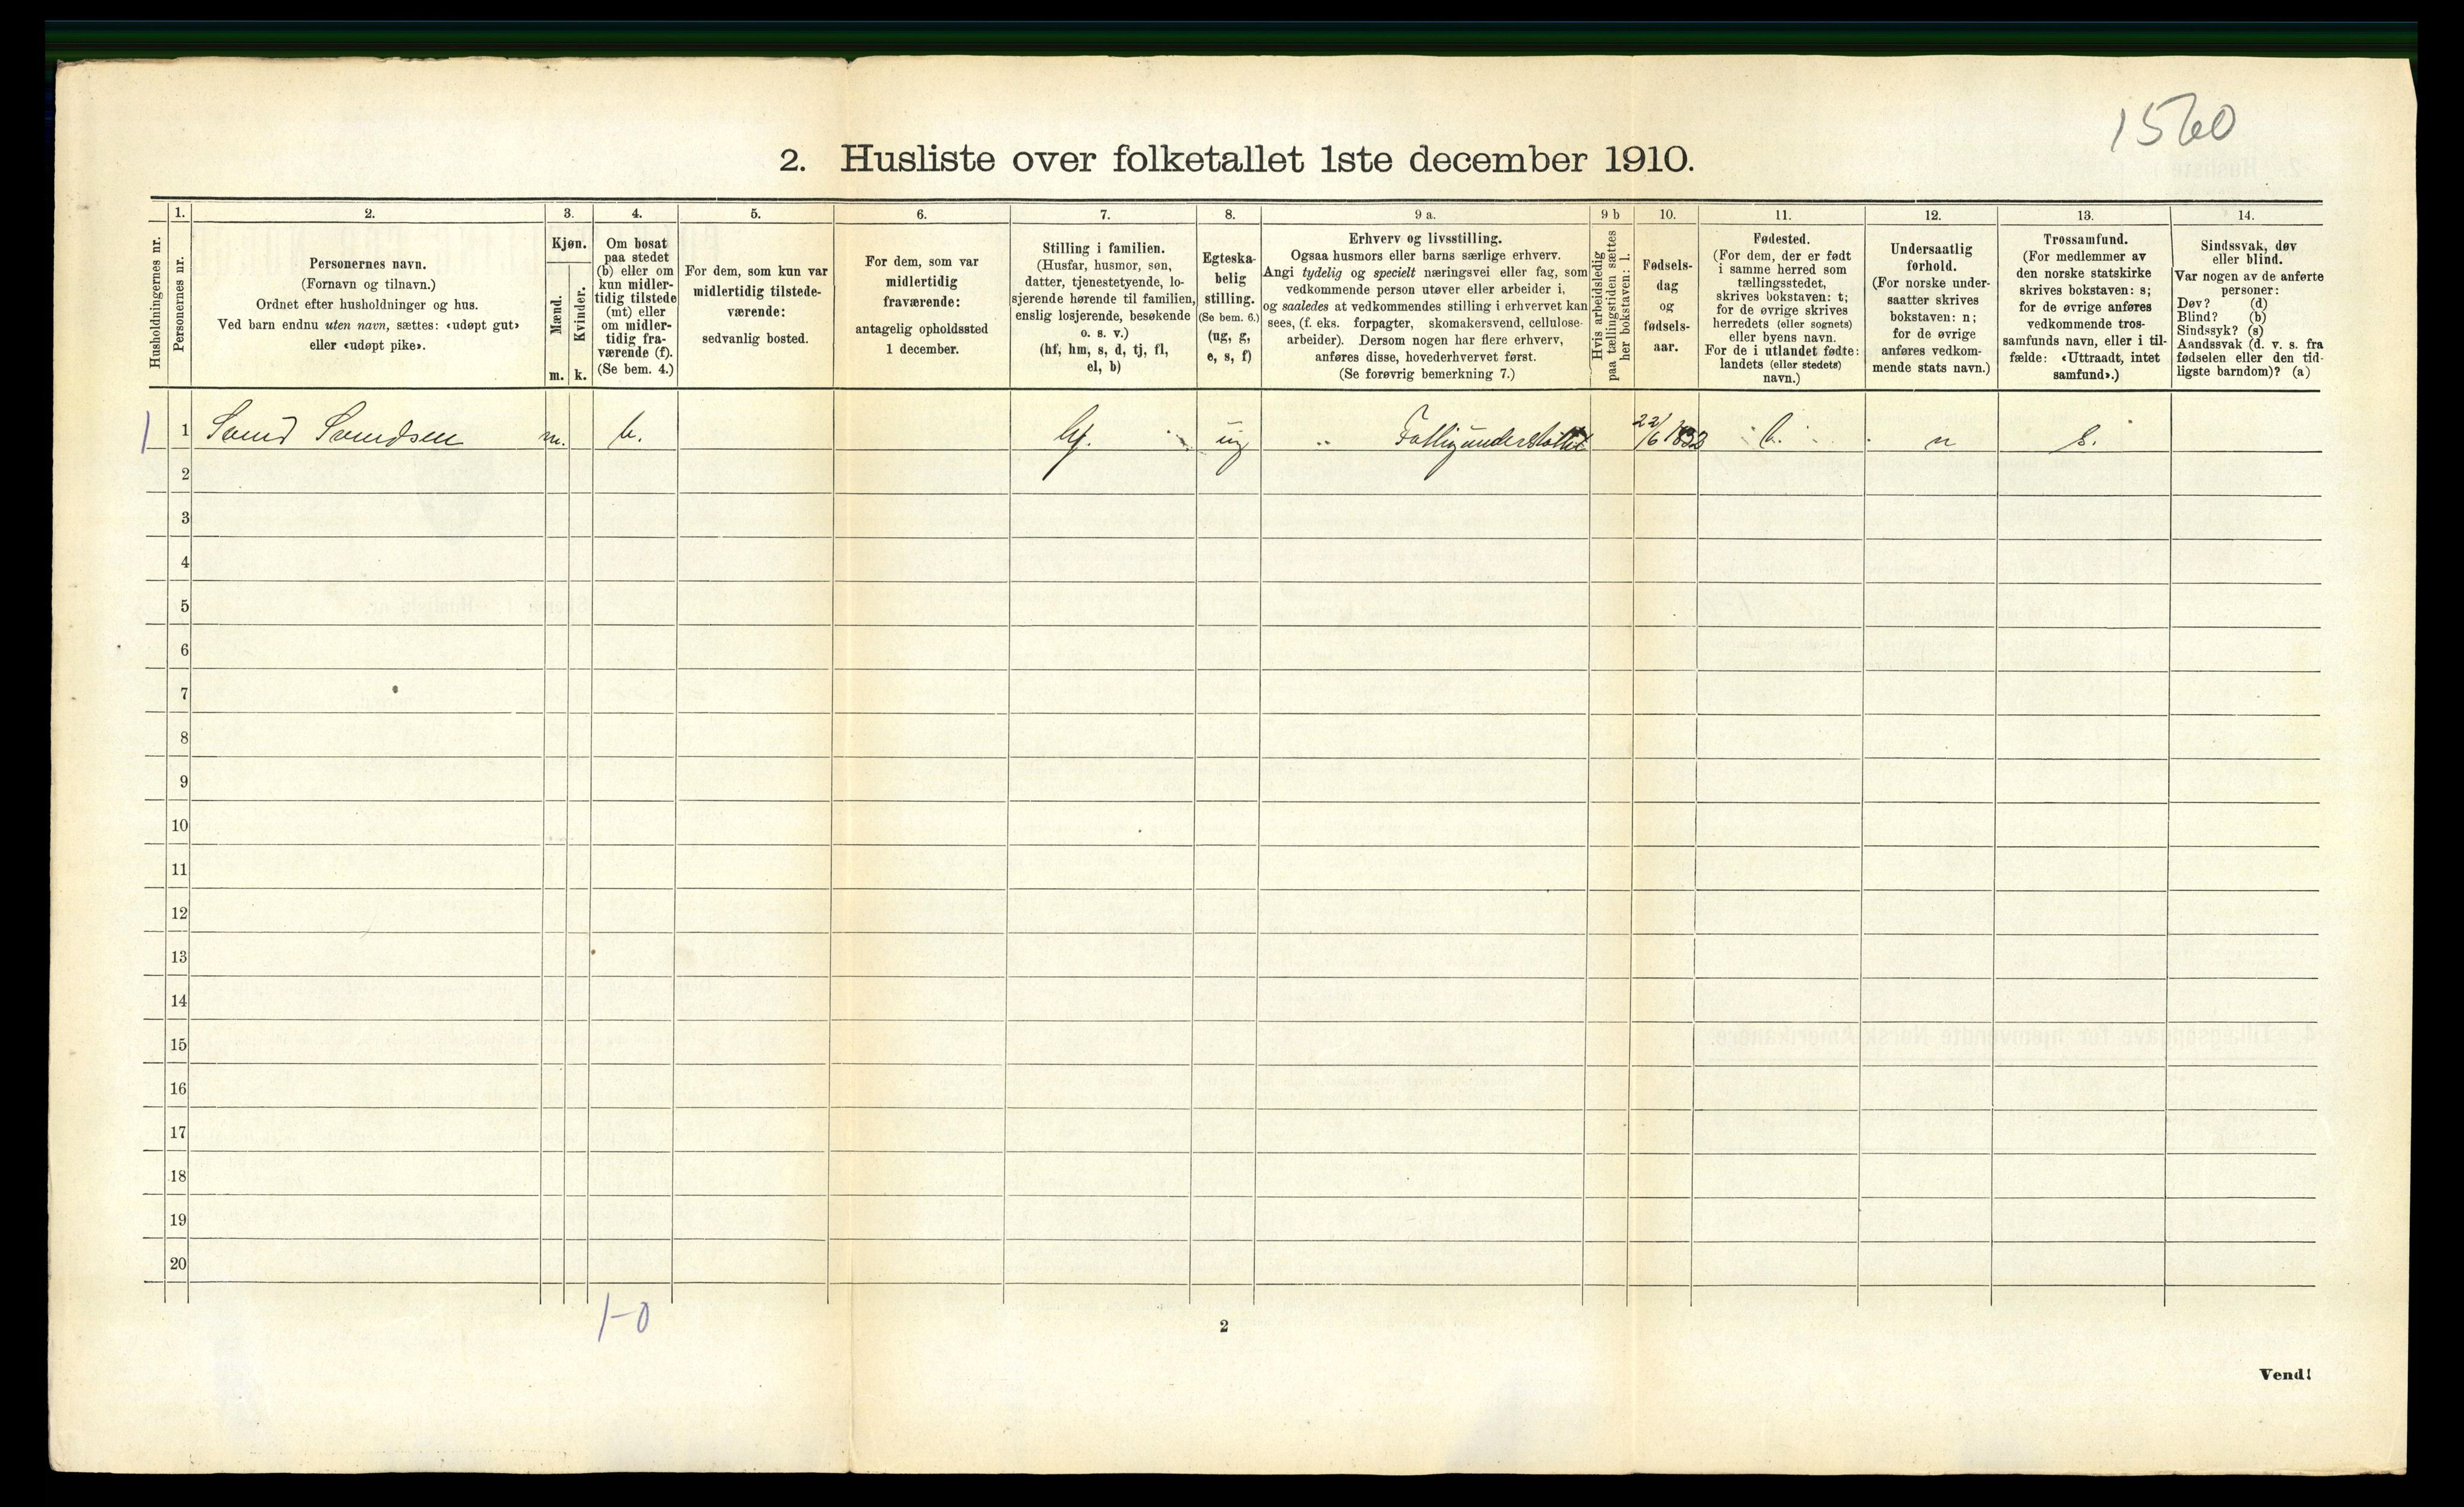 1560
2. Husliste over folketallet 1ste december 1910.
Husholdningernes nr.
1.
Personernes nr.
2.
Personernes navn.
(Fornavn og tilnavn.)
Ordnet efter husholdninger og hus.
Ved barn endnu uten navn, sættes: «udøpt gut»
eller «udøpt pike».
3.
Kjøn.
Mænd.
Kvinder.
m. k.
4.
Om bosat
paa stedet
(b) eller om
kun midler-
tidig tilstede
(mt) eller
om midler-
tidig fra-
værende (f).
(Se bem. 4.)
5.
For dem, som kun var
midlertidig tilstede-
værende:
sedvanlig bosted.
6.
For dem, som var
midlertidig
fraværende:
antagelig opholdssted
1 december.
7.
Stilling i familien.
(Husfar, husmor, søn,
datter, tjenestetyende, lo-
sjerende hørende til familien,
enslig losjerende, besøkende
o. s. v.)
(hf, hm, s, d, tj, fl,
el, b)
8.
Egteska-
belig
stilling.
(Se bem. 6.)
(ug, g,
e, s, f)
9 a.
Erhverv og livsstilling.
Ogsaa husmors eller barns særlige erhverv.
Angi tydelig og specielt næringsvei eller fag, som
vedkommende person utøver eller arbeider i,
og saaledes at vedkommendes stilling i erhvervet kan
sees, (f. eks. forpagter, skomakersvend, cellulose-
arbeider). Dersom nogen har flere erhverv,
anføres disse, hovederhvervet først.
(Se forøvrig bemerkning 7.)
9 b
Hvis arbeidsledig
paa tællingstiden sættes
her bokstaven: l.
10.
Fødsels-
dag
og
fødsels-
aar.
11.
Fødested.
(For dem, der er født
i samme herred som
tællingsstedet,
skrives bokstaven: t;
for de øvrige skrives
herredets (eller sognets)
eller byens navn.
For de i utlandet fødte:
landets (eller stedets)
navn.)
12.
Undersaatlig
forhold.
(For norske under-
saatter skrives
bokstaven: n;
for de øvrige
anføres vedkom-
mende stats navn.)
13.
Trossamfund.
(For medlemmer av
den norske statskirke
skrives bokstaven: s;
for de øvrige anføres
vedkommende tros-
samfunds navn, eller i til-
fælde: «Uttraadt, intet
samfund».)
14.
Sindssvak, døv
eller blind.
Var nogen av de anførte
personer:
Døv? (d)
Blind? (b)
Sindssyk? (s)
Aandssvak (d. v. s. fra
fødselen eller den tid-
ligste barndom)? (a)
1 1 Svend Svendsen m. b. hf. ug Fattigunderstøttet 22/6 1832 t. n s.
2
3
4
5
6
7
8
9
10
11
12
13
14
15
16
17
18
19
20
1-0
2
Vend!